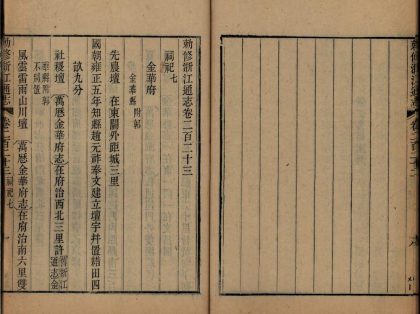 勅修浙江通志卷二百二十三
祠祀七
金華府
金華縣附郭
先農壇 在東關外距城三里
國朝雍正五年知縣趙元祚奉文建立壇宇并置耤田四
畝九分
社稷壇 萬曆金華府志在府治西北三里許 舊浙江通志金
華縣附郭不另置
風雲雷雨山川壇 萬曆金華府志在府治南六里雙
勅修浙江通志 卷二百二十三 祠祀七 一